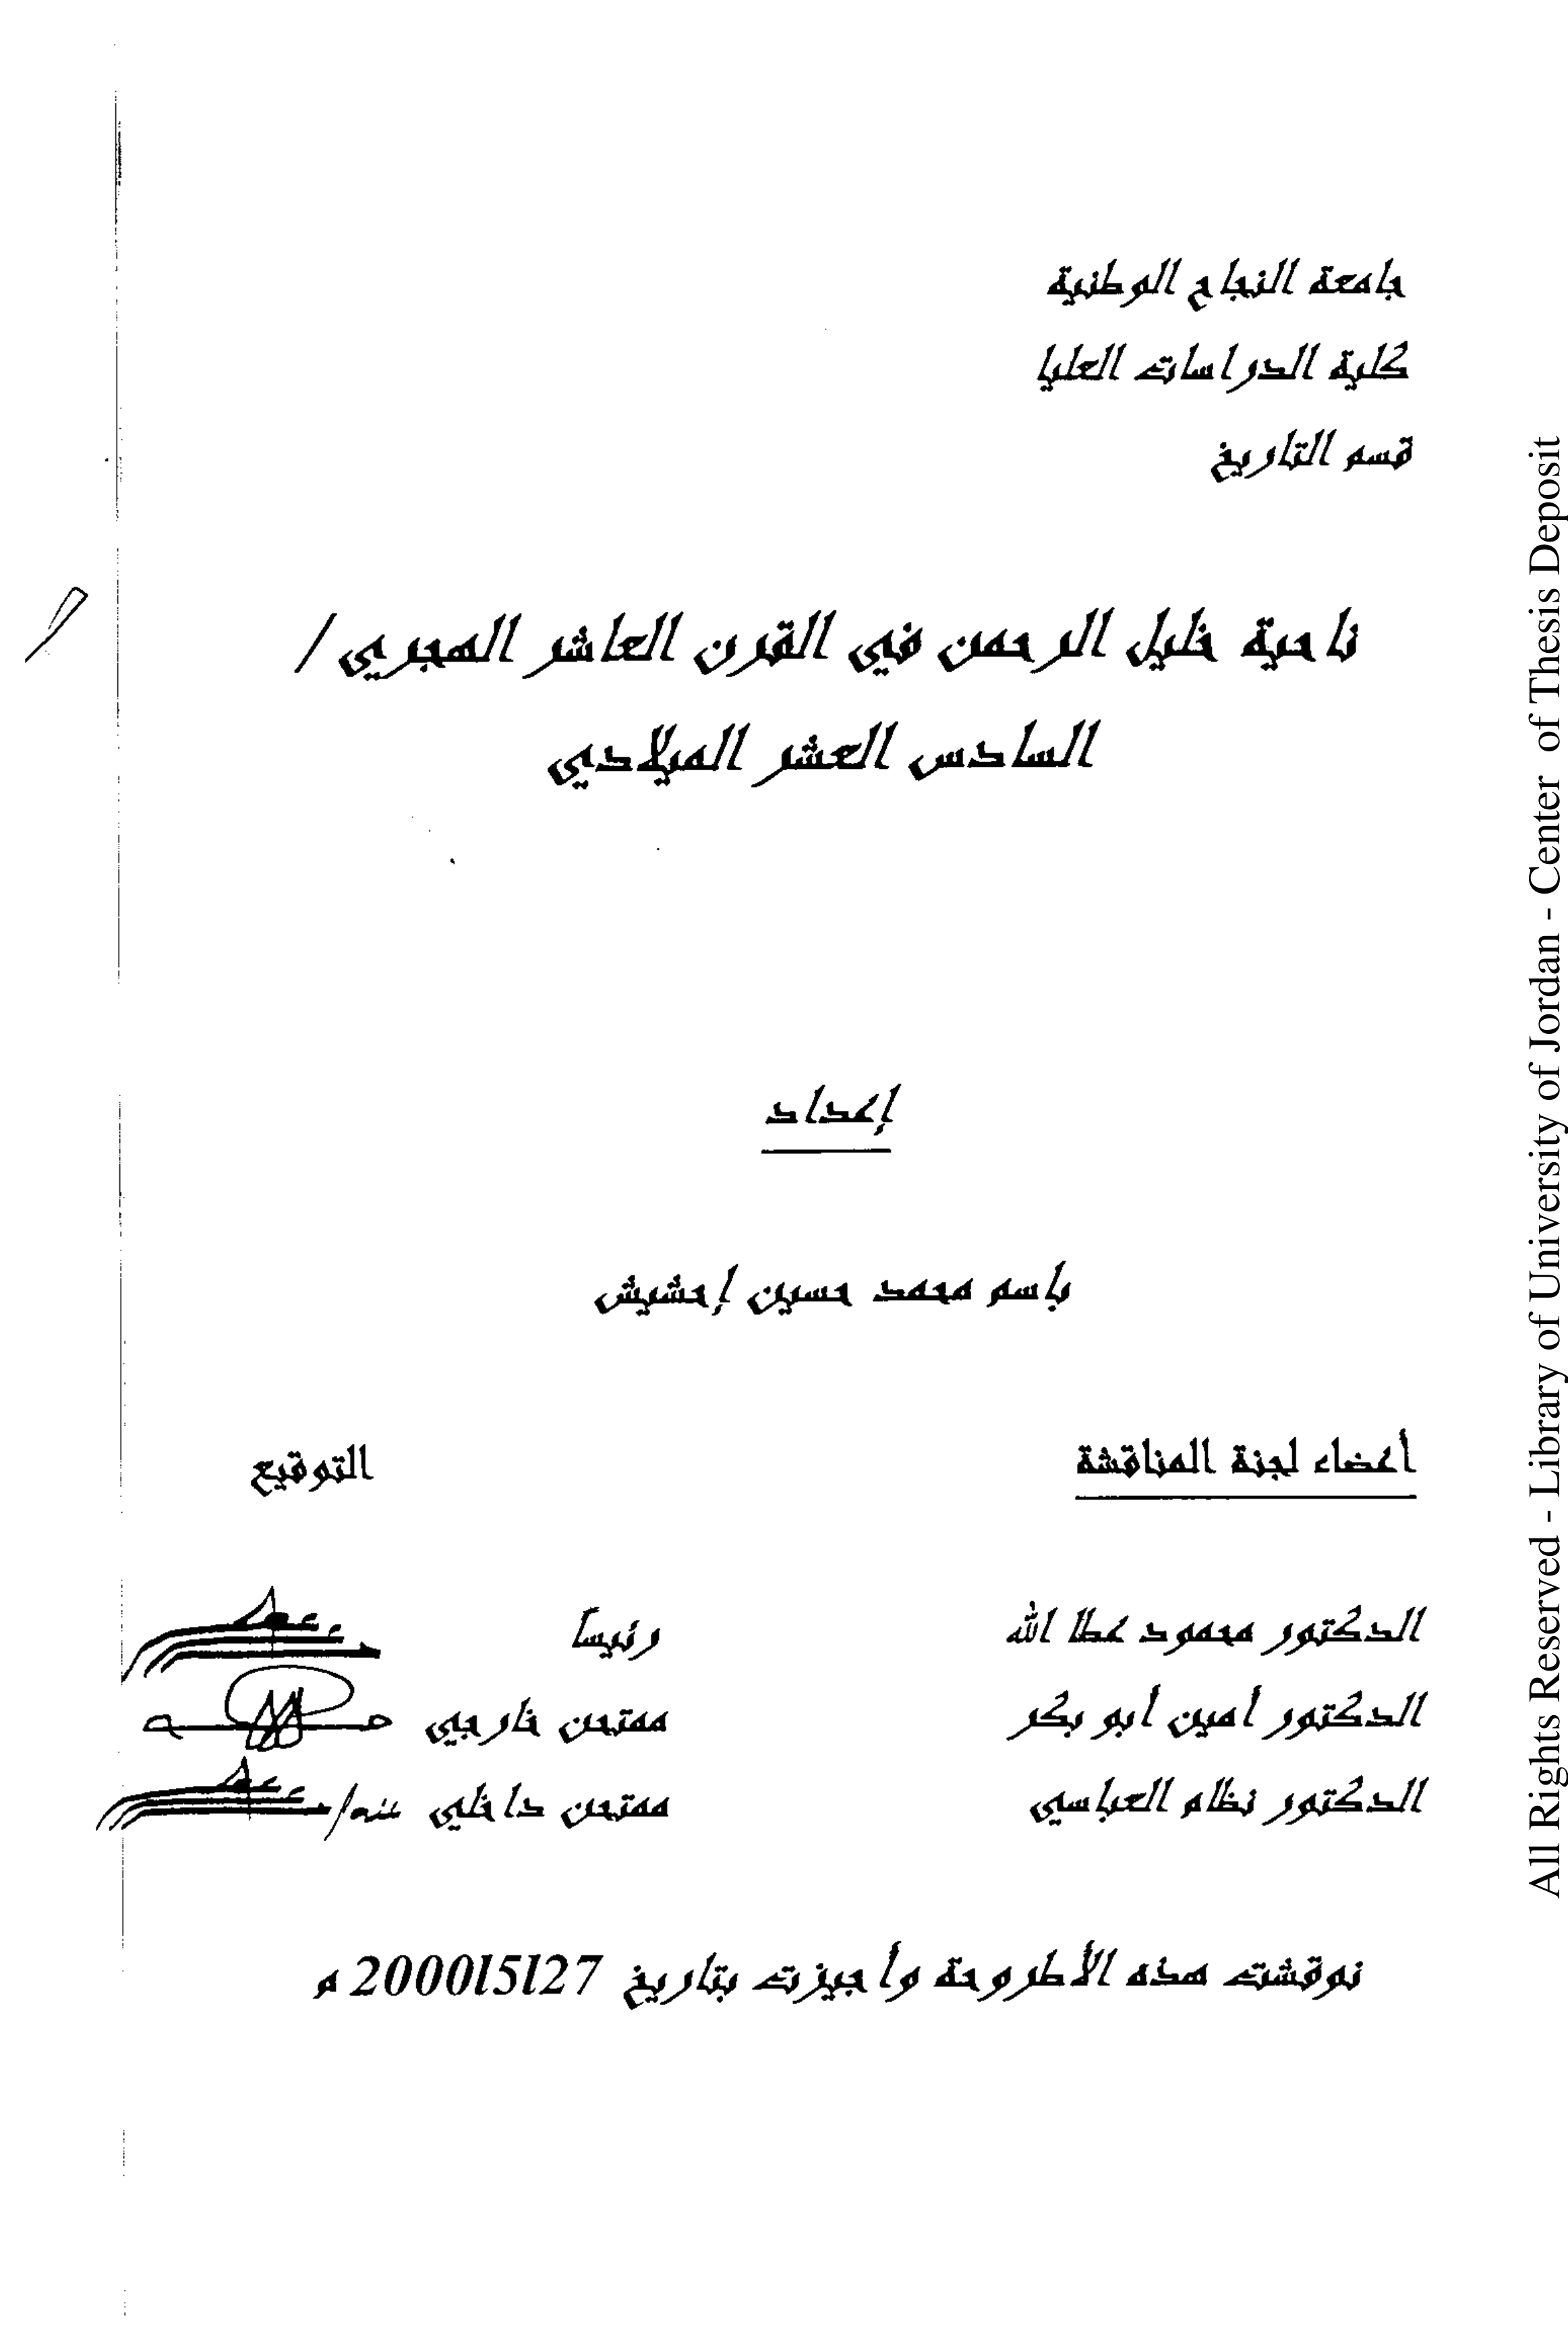 جامعة النجاح الوطنية
كلية الدراسات العليا
قسم التاريخ
ناحية خليل الرحمن في القرن العاشر الهجري /
السادس العشر الميلادي
إعداد
باسم محمد حسين إحشيش
أعضاء لجنة المناقشة التوقيع
الدكتور محمود عطا الله رئيساً
الدكتور أمين أبو بكر ممتحن خارجي
الدكتور نظام العباسي ممتحن داخلي
نوقشت هذه الأطروحة وأجيزت بتاريخ 2000\5\27 م
All Rights Reserved - Library of University of Jordan - Center of Thesis Deposit